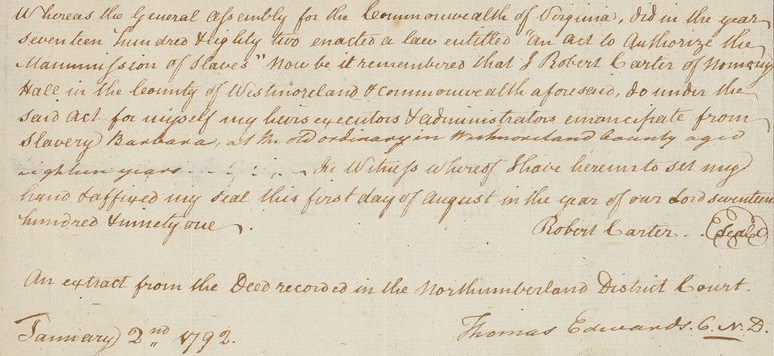 Whereas the General Assembly for the Commonwealth of Virginia, did in the year
seventeen hundred & eighty two enacted a law entitled "An act to Authorize the
Manumission of Slaves" Now be it remembered that I Robert Carter of Nomony
Hall in the County of Westmoreland & Commonwealth aforesaid, do under the
said Act for myself my heirs executors & administrators emancipate from
Slavery Barbara, at the old ordinary in Westmoreland County aged
eighteen years In Witness whereof I have hereunto set my
hand & affixed my seal this first day of August in the year of our Lord seventeen
hundred & ninety one.
Robert Carter . . Seal
An extract from the Deed recorded in the Northumberland District Court.
January 2nd 1792.
Thomas Edwards. C. N. D.